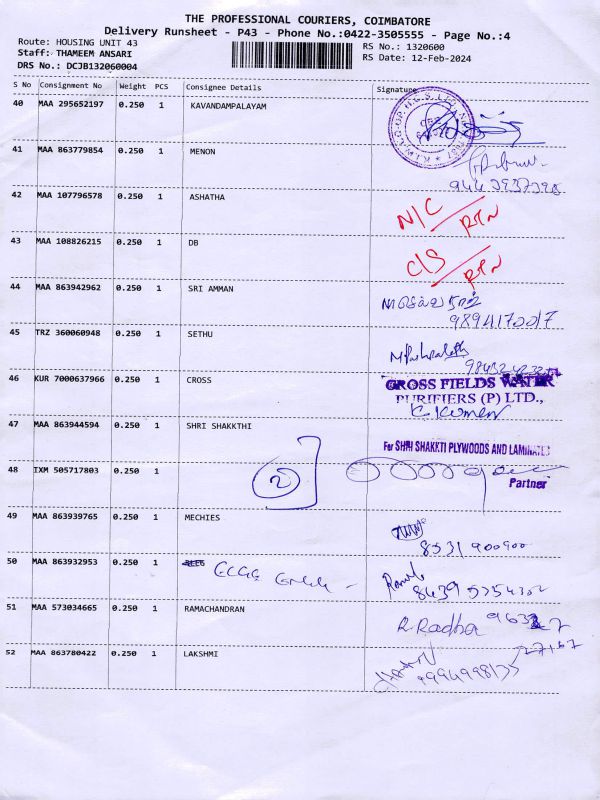 THE PROFESSIONAL COURIERS, COIMBATORE
Delivery Runsheet - P43 - Phone No.:0422-3505555 - Page No.:4
Route: HOUSING UNIT 43 RS No.: 1320600
Staff: THAMEEM ANSARI RS Date: 12-Feb-2024
DRS No.: DCJB132060004
S No Consignment No Weight PCS Consignee Details Signature
40 MAA 295652197 0.250 1 KAVANDAMPALAYAM
41 MAA 863779854 0.250 1 MENON
42 MAA 107796578 0.250 1 ASHATHA N/C RTN
43 MAA 108826215 0.250 1 DB C/S RTN
44 MAA 863942962 0.250 1 SRI AMMAN
9894170017
45 TRZ 360060948 0.250 1 SETHU
46 KUR 7000637966 0.250 1 CROSS CROSS FIELDS WATER
PURIFIERS (P) LTD.,
47 MAA 863944594 0.250 1 SHRI SHAKKTHI For SHRI SHAKKTI PLYWOODS AND LAMINATES
48 IXM 505717803 0.250 1 2 Partner
49 MAA 863939765 0.250 1 MECHIES
8531900900
50 MAA 863932953 0.250 1
51 MAA 573034665 0.250 1 RAMACHANDRAN R. Radha
52 MAA 863780422 0.250 1 LAKSHMI
9994998135